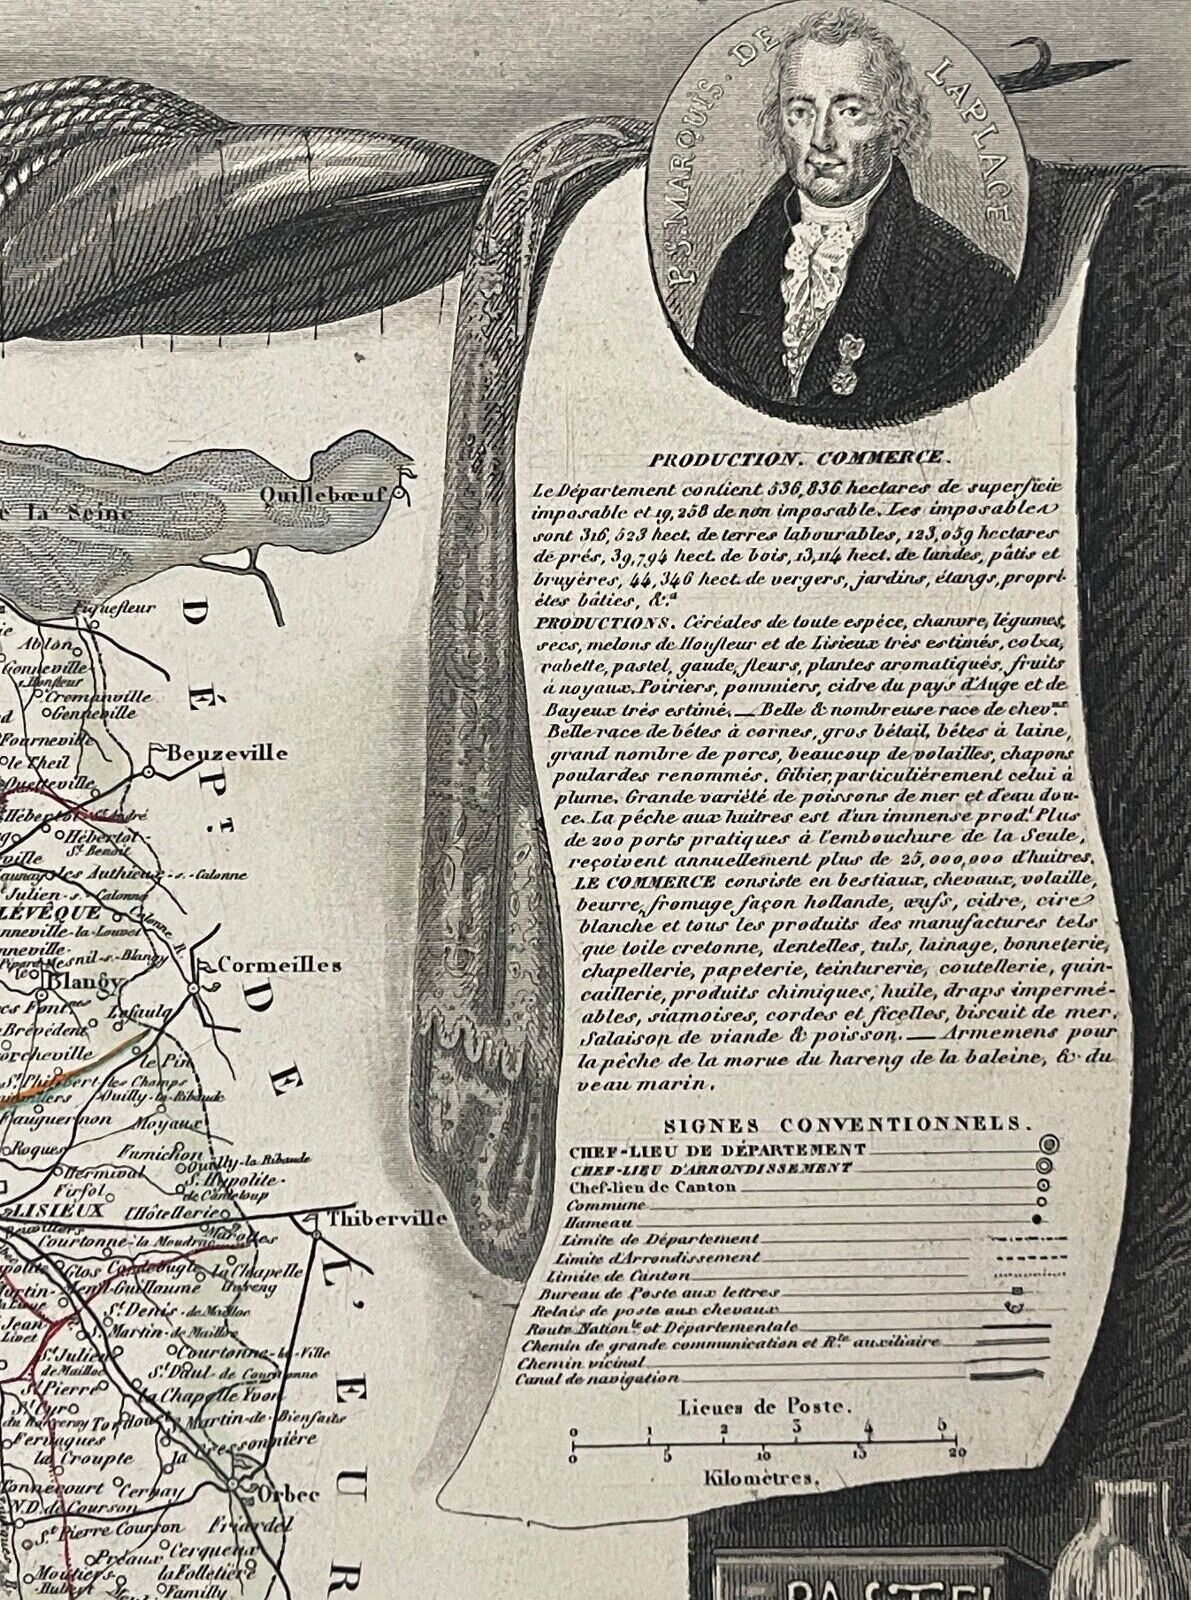 P.S. MARQUIS. DE LAPLACE
PRODUCTION. COMMERCE.
Le Département contient 536,836 hectares de superficie
imposable et 19,258 de non imposable. Les imposables
sont 316,523 hect. de terres labourables, 123,059 hectares
de prés, 39,794 hect. de bois, 13,114 hect. de landes, pâtis et
bruyères, 44,346 hect. de vergers, jardins, étangs, propri-
étes bâties, &.ª
PRODUCTIONS. Céréales de toute espèce, chanvre, légumes,
secs, melons de Honfleur et de Lisieux très estimés, colza,
rabette, pastel, gaude, fleurs, plantes aromatiques, fruits
à noyaux, Poiriers, pommiers, cidre du pays d'Auge et de
Bayeux très estimé. — Belle & nombreuse race de chev.ˣ
Belle race de bêtes à cornes, gros bétail, bêtes à laine,
grand nombre de porcs, beaucoup de volailles, chapons
poulardes renommés. Gibier, particulièrement celui à
plume. Grande variété de poissons de mer et d'eau dou-
ce. La pêche aux huitres est d'un immense prod.ᵗ Plus
de 200 ports pratiques à l'embouchure de la Seule,
reçoivent annuellement plus de 25,000,000 d'huitres.
LE COMMERCE consiste en bestiaux, chevaux, volaille,
beurre, fromage façon hollande, œufs, cidre, cire
blanche et tous les produits des manufactures tels
que toile cretonne, dentelles, tuls, lainage, bonneterie,
chapellerie, papeterie, teinturerie, coutellerie, quin-
caillerie, produits chimiques, huile, draps impermé-
ables, siamoises, cordes et ficelles, biscuit de mer.
Salaison de viande & poisson. — Armemens pour
la pêche de la morue du hareng de la baleine, & du
veau marin.
SIGNES CONVENTIONNELS.
CHEF-LIEU DE DÉPARTEMENT
CHEF-LIEU D'ARRONDISSEMENT
Chef-lieu de Canton
Commune
Hameau
Limite de Département
Limite d'Arrondissement
Limite de Canton
Bureau de Poste aux lettres
Relais de poste aux chevaux
Route Nation.ˡᵉ et Départementale
Chemin de grande communication et R.ᵗᵉ auxiliaire
Chemin vicinal
Canal de navigation
Lieues de Poste.
0 1 2 3 4 5
0 5 10 15 20
Kilomètres.
PASTEL
Quillebœuf
la Seine
DÉPT. DE L'EUR
Fiquefleur
Ablon
Gonneville
s. Honfleur
Cremanville
Genneville
Fourneville
le Theil
Quetteville
Beuzeville
Hébertot
St. André
Hébertot
St. Benoit
les Authieux-s.-Calonne
St. Julien-s.-Calonne
LÉVÊQUE
Calonne R.
nneville-la-Louvet
Mesnil-s.-Blangy
Blangy
Cormeilles
Brévédent
le Pin
St. Philbert-des Champs
Ouilly-la-Ribaude
Fauguernon
Moyaux
Roques
Fumichon
Ouilly-la Ribaude
Hermival
St. Hypolite-
de Canteloup
Firfol
LISIEUX
l'Hôtellerie
Thiberville
Marolles
Courtonne-la Meudrac
Glos
Cordebugle
la Chapelle
Hareng
Mesnil-Guillaume
St. Denis-de Mailloc
St. Martin-de Mailloc
St. Julien
de Mailloc
Courtonne-la-Ville
St. Paul-de Courtonne
St. Pierre
la Chapelle Yvon
St. Cyr
St. Martin-de-Bienfaits
Fervaques
la Cressonnière
la Croupte
Tonnencourt
Cernay
Orbec
N.D. de Courson
St. Pierre Courson
Friardel
Préaux
Cerqueux
Moutiers
Hubert
la Folletière
Familly